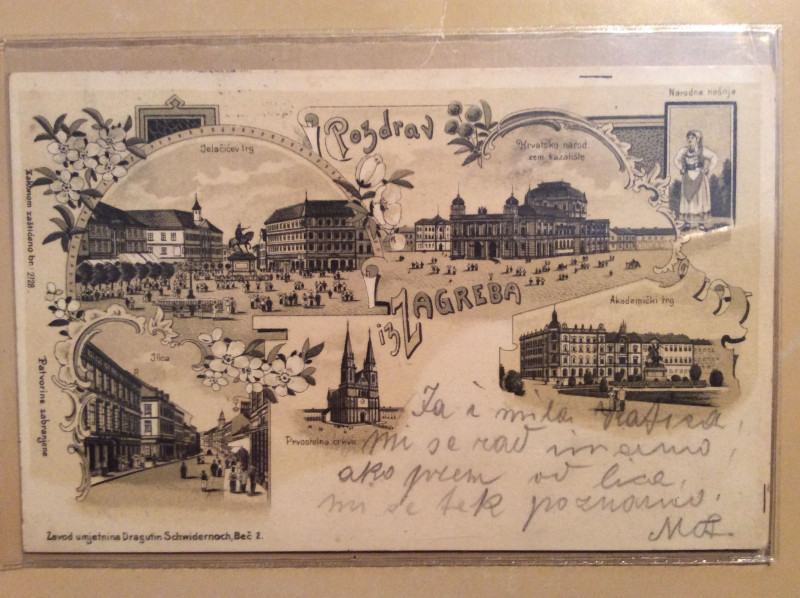 Narodna nošnja
Pozdrav
iz ZAGREBA
Jelačićev trg
Hrvatsko národ.
zem. kazalište
Akademički trg
Ilica
Prvostolna crkva
Zakonom zaštićeno br. 2728.
Patvorina zabranjena
Ja i mila
mi se rad imamo,
ako prem od lica,
mi se tek poznamo.
Zavod umjetnina Dragutin Schwidernoch, Beč 2.